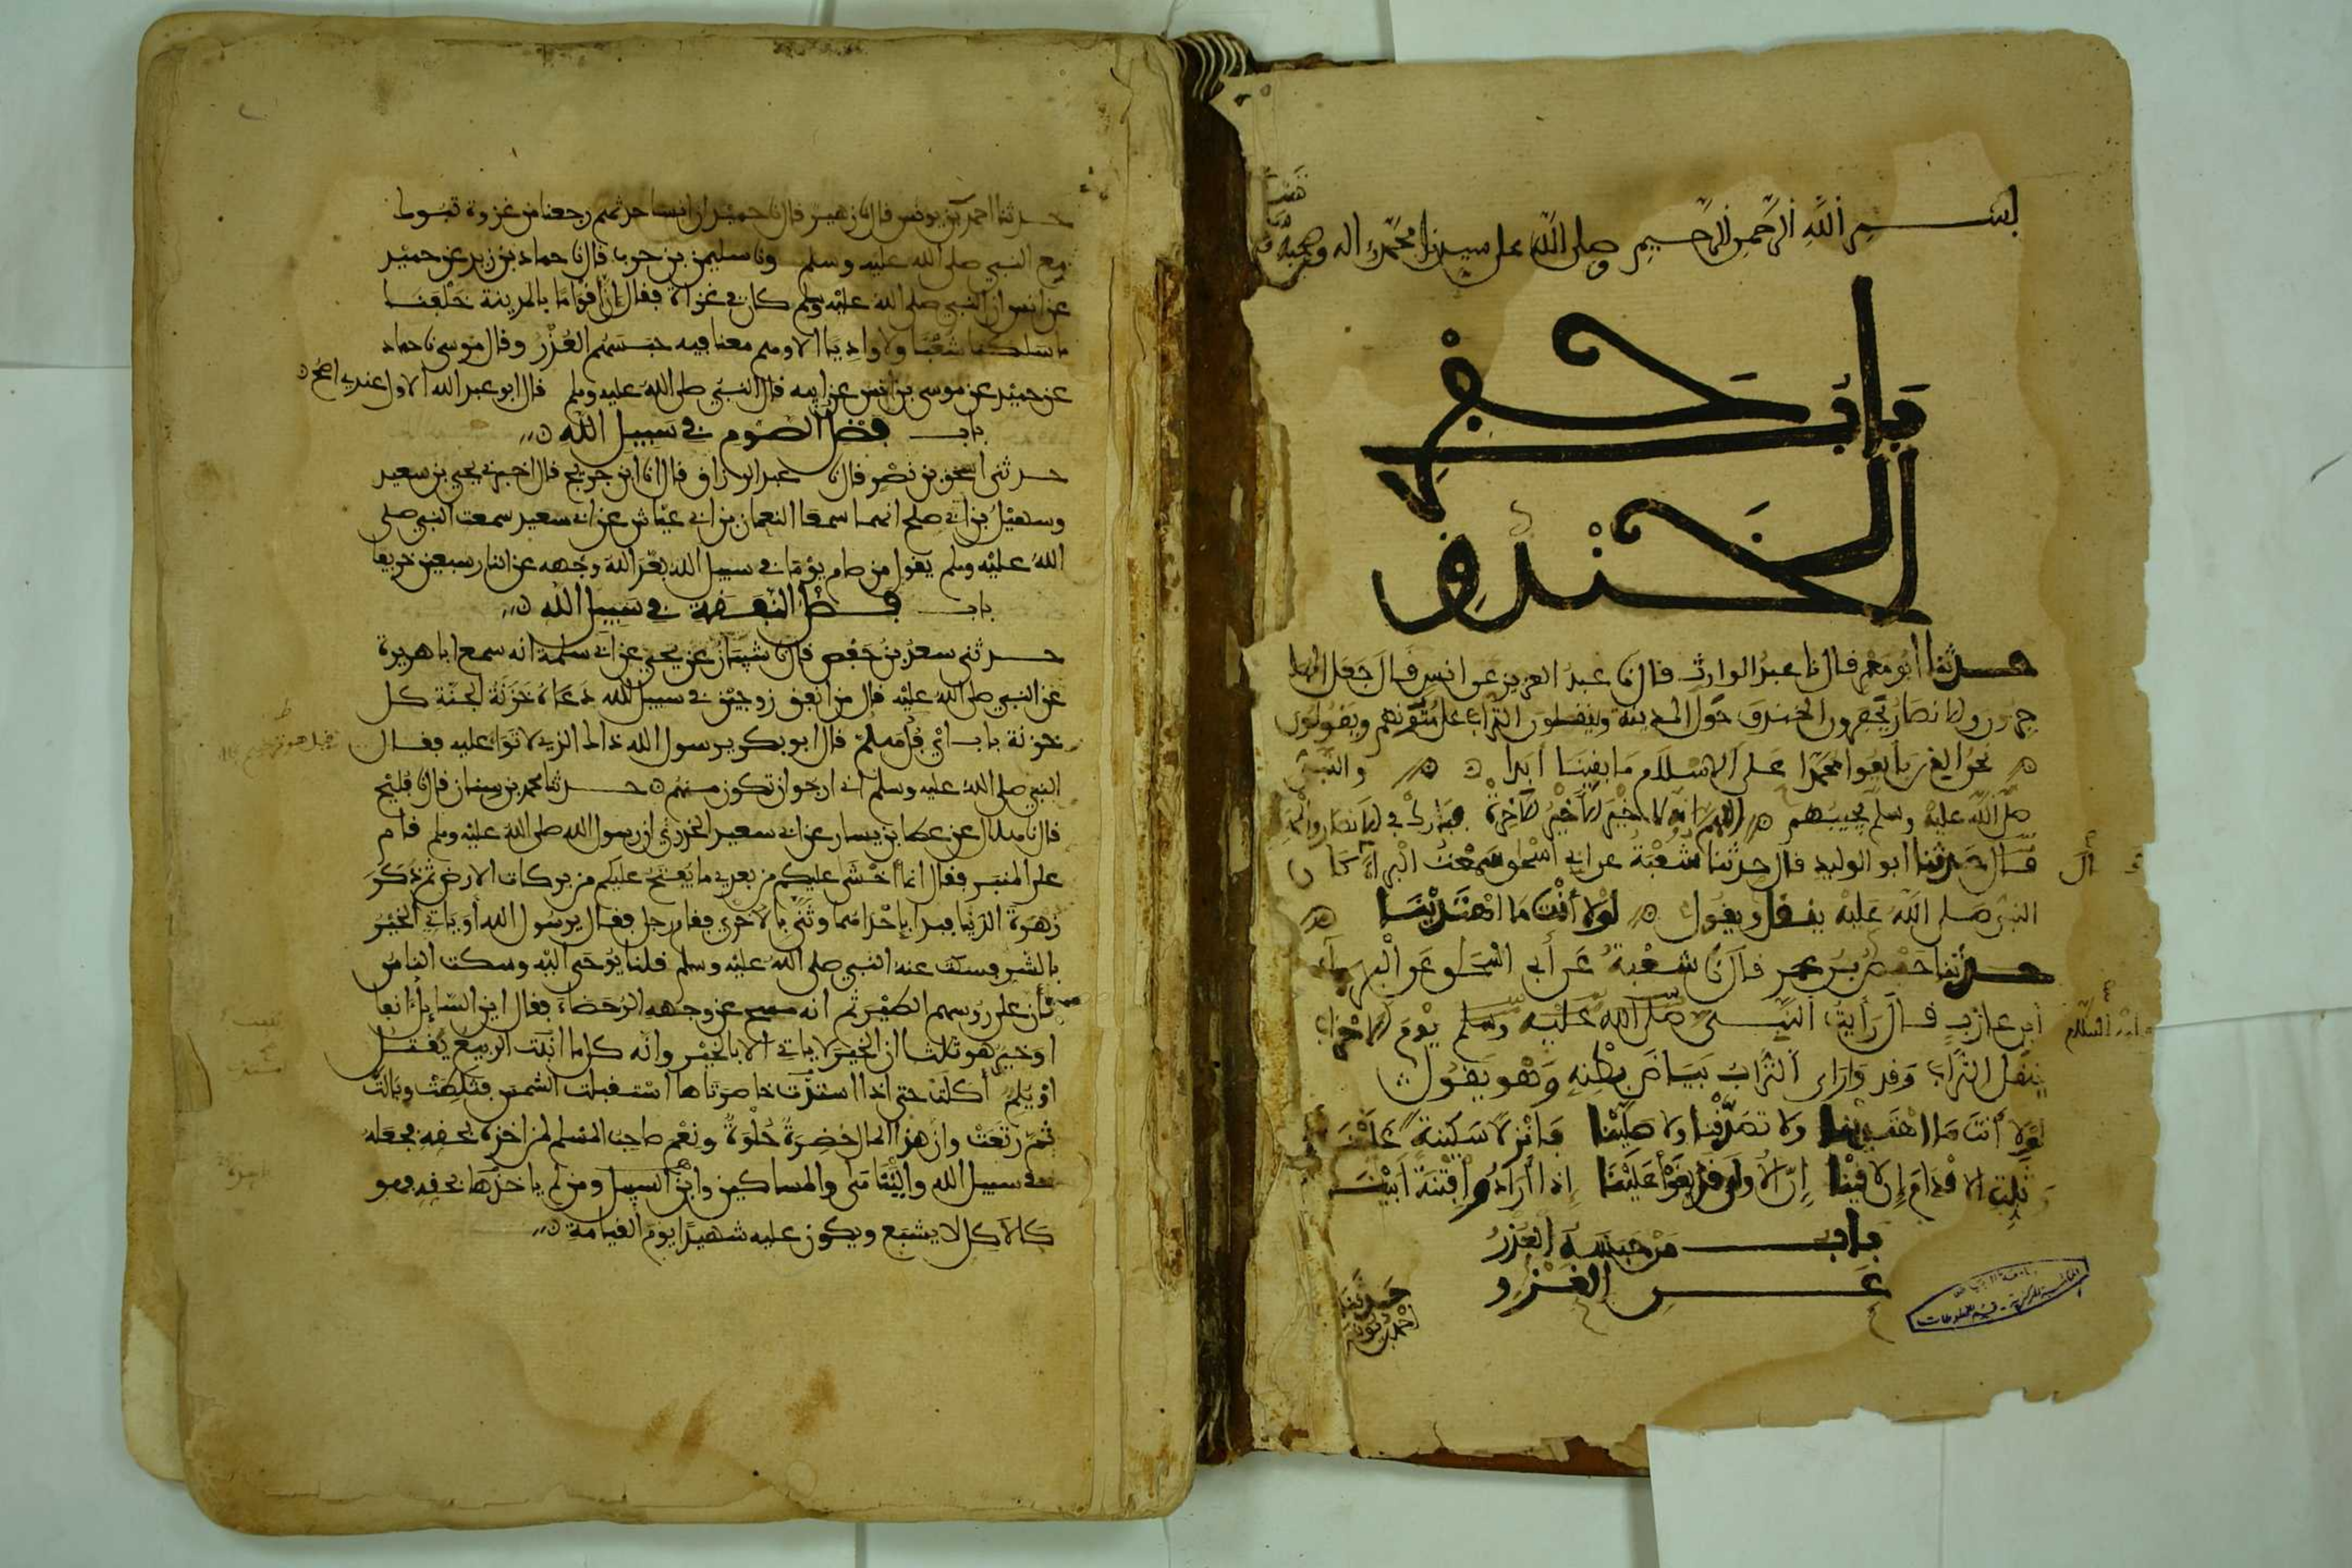 بسم الله الرحمن الرحيم وصلى الله على سيدنا محمد واله وصحبه
باب حفر
الخندق
حدثنا أبو معمر قال نا عبد الوارث قال نا عبد العزيز عن انس قال جعل المها
جرون والانصار يحفرون الخندق حول المدينة وينقلون التراب على متونهم ويقولون
نحن الذين بايعوا محمدا على الاسلام ما بقينا أبدا والنبي
صلى الله عليه وسلم يجيبهم اللهم انه لا خير الا خير الآخرة فبارك في الانصار والمها
قال حدثنا ابو الوليد قال حدثنا شعبة عن ابي اسحق سمعت البراء كان
النبي صلى الله عليه ينقل ويقول لولا أنت ما اهتدينا
حدثنا حفص بن عمر قال نا شعبة عن أبي اسحق عن البراء
ابن عازب قال رأيت النبي صلى الله عليه وسلم يوم الاحزاب
ينقل التراب وقد وارى التراب بياض بطنه وهو يقول
لولا أنت ما اهتدينا ولا تصدقنا ولا صلينا فأنزل سكينة علينا
وثبت الاقدام إن لاقينا إن الأولى قد بغوا علينا إذا أرادوا فتنة أبينا
باب من حبسه العذر
عن الغزو
حدثنا
احمد بن يونس
حدثنا احمد بن يونس قال نا زهير قال نا حميد ان انسا حدثهم رجعنا من غزوة تبوك
مع النبي صلى الله عليه وسلم ونا سليمن بن حرب قال نا حماد بن زيد عن حميد
عن انس ان النبي صلى الله عليه وسلم كان في غزاة فقال إن أقواما بالمدينة خلفنا
ما سلكنا شعبا ولا واديا الا وهم معنا فيه حبسهم العذر وقال موسى نا حماد
عن حميد عن موسى بن انس عن ابيه قال النبي صلى الله عليه وسلم قال ابو عبد الله الاول عندي اصح
باب فضل الصوم في سبيل الله
حدثني اسحق بن نصر قال نا عبد الرزاق قال انا ابن جريج قال اخبرني يحيى بن سعيد
وسهيل بن ابي صلح انهما سمعا النعمان بن ابي عياش عن ابي سعيد سمعت النبي صلى
الله عليه وسلم يقول من صام يوما في سبيل الله بعد الله وجهه عن النار سبعين خريفا
باب فضل النفقة في سبيل الله
حدثني سعد بن حفص قال نا شيبان عن يحيى عن ابي سلمة انه سمع ابا هريرة
عن النبي صلى الله عليه قال من انفق زوجين في سبيل الله دعاه خزنة الجنة كل
خزنة باب أي فل هلم قال ابو بكر يرسول الله ذاك الذي لا توا عليه فقال
النبي صلى الله عليه وسلم اني ارجوا ان تكون منهم حدثنا محمد بن سنان قال نا فليح
قال نا هلال عن عطا بن يسار عن ابي سعيد الخدري ان رسول الله صلى الله عليه وسلم قام
على المنبر فقال انما أخشى عليكم من بعدي ما يفتح عليكم من بركات الارض ثم ذكر
زهرة الدنيا فبدا بإحداهما وثنى بالاخرى فقام رجل فقال يرسول الله أو ياتي الخير
بالشر فسكت عنه النبي صلى الله عليه وسلم قلنا يوحى اليه وسكت الناس
كأن على رؤسهم الطير ثم انه مسح عن وجهه الرحضاء فقال اين السائل أنفا
اوخير هو ثلاثا ان الخير لا ياتي الا بالخير وانه كل ما انبت الربيع يقتل
او يلم أكلت حتى اذا امتدت خاصرتاها استقبلت الشمس فثلطت وبالت
ثم رتعت وان هذا المال خضرة حلوة ونعم صاحب المسلم لمن اخذه بحقه فجعله
في سبيل الله واليتامى والمساكين وابن السبيل ومن لم ياخذها بحقه فهو
كالآكل لا يشبع ويكون عليه شهيدا يوم القيامة